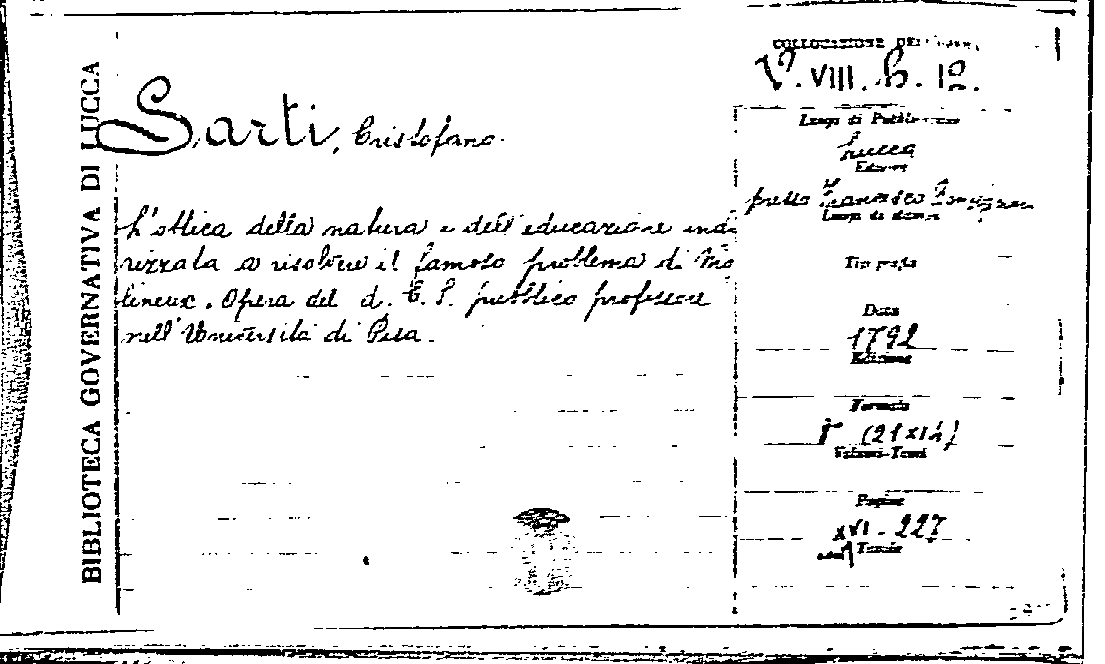 BIBLIOTECA GOVERNATIVA DI LUCCA
COLLOCAZIONE DELL'OPERA
V. VIII. b. 12.
Sarti, Cristofano.
L'ottica della natura e dell'educazione indi
rizzata a risolvere il famoso problema di Mo
lineux. Opera del d. C. S. pubblico professore
nell'Università di Pisa.
Luogo di Pubblicazione
Lucca
Editore
presso Francesco
Luogo di stampa
Tipografia
Data
1792
Edizione
Formato
8° (21x14)
Volumi-Tomi
Pagine
XVI - 227
Tavole